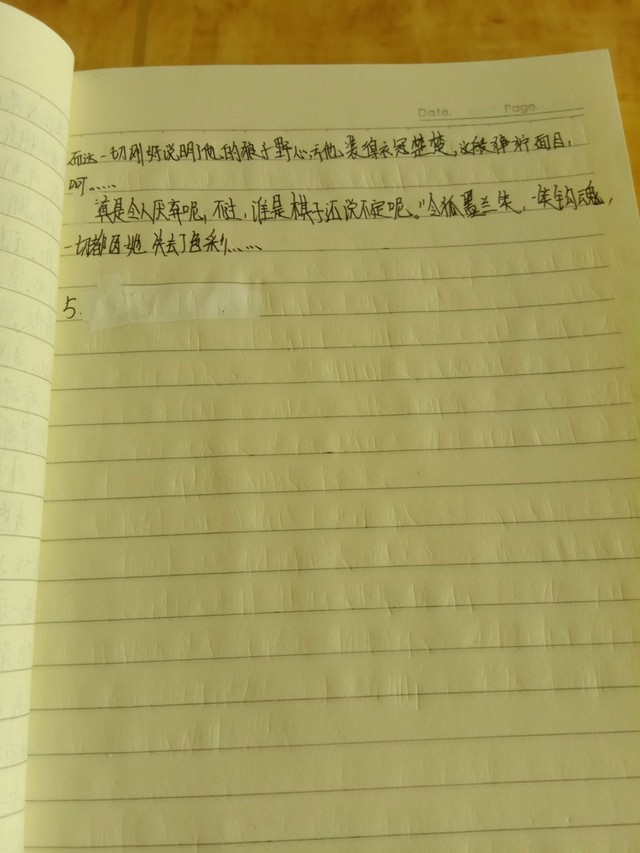 Date. Page.
而这一切刚好说明了他的狼子野心,亏他装得衣冠楚楚,这般狰狞面目,
呵……
真是令人厌弃呢,不过,谁是棋子还说不定呢。”令狐墨兰笑,一笑钩魂,
一切都因她失去了色彩……
5.